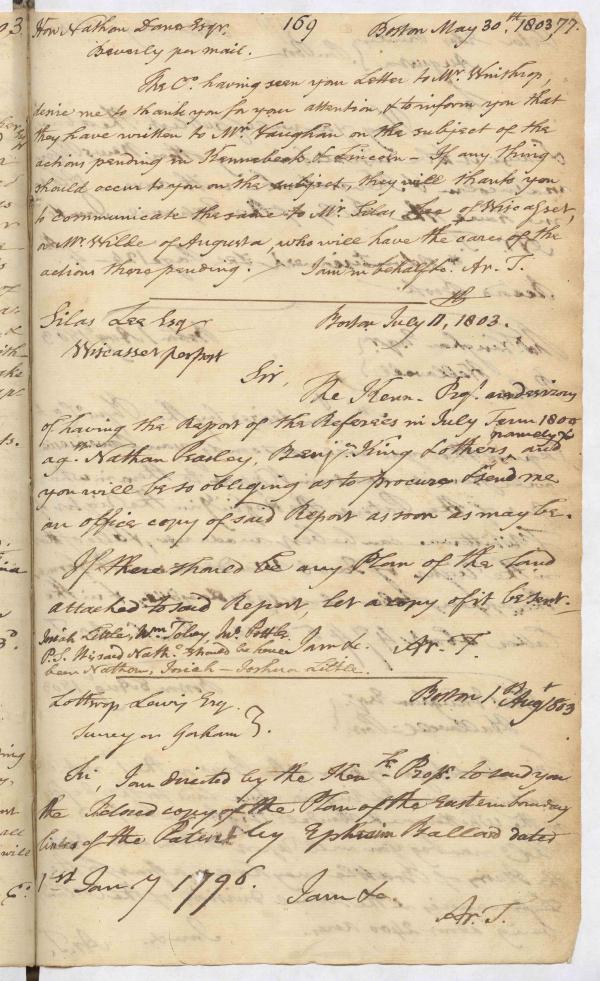 Hon Nathan Dane Esqr. 169 Boston May 30.th 1803, 77.
Beverly per mail.
The Co. having seen your Letter to Mr. Winthrop,
desire me to thank you for your attention, & to inform you that
they have written to Mr. Vaughan on the subject of the
actions pending in Kennebeck & Lincoln - If any thing
should occur to you on the subject, they will thank you
to communicate the same to Mr. Silas Lee of Wiscasset,
or Mr. Wilde of Augusta, who will have the care of the
actions there pending. I am in behalf &c. Ar. T.
Silas Lee Esqr Boston July 11, 1803.
Wiscasset per post
Sir,
The Kenn. Prop.s are desirous
of having the Report of the Referees in July Term 1800
namely &
ag.st Nathan Beasley, Benj.n King & others, and
you will be so obliging as to procure & send me
an office copy of said Report as soon as may be.
If there should be any Plan of the Land
attached to said Report, let a copy of it be sent.
Josiah Little, Wm Toby, Js. Pottle. I am &c. Ar. T.
P.S. Wi said Nath.l should be
been Nathan, Josiah - Joshua Little.
Lothrop Lewis Esq. Boston 1.st Augt 1803
Survey or Gorham }.
Sir, I am directed by the Ken.k Prop.s to send you
the Inclosed copy of the Plan of the Eastern boundary
lines of the Patent by Ephraim Ballard dated
1st Jany 1796. I am &c
Ar. T.